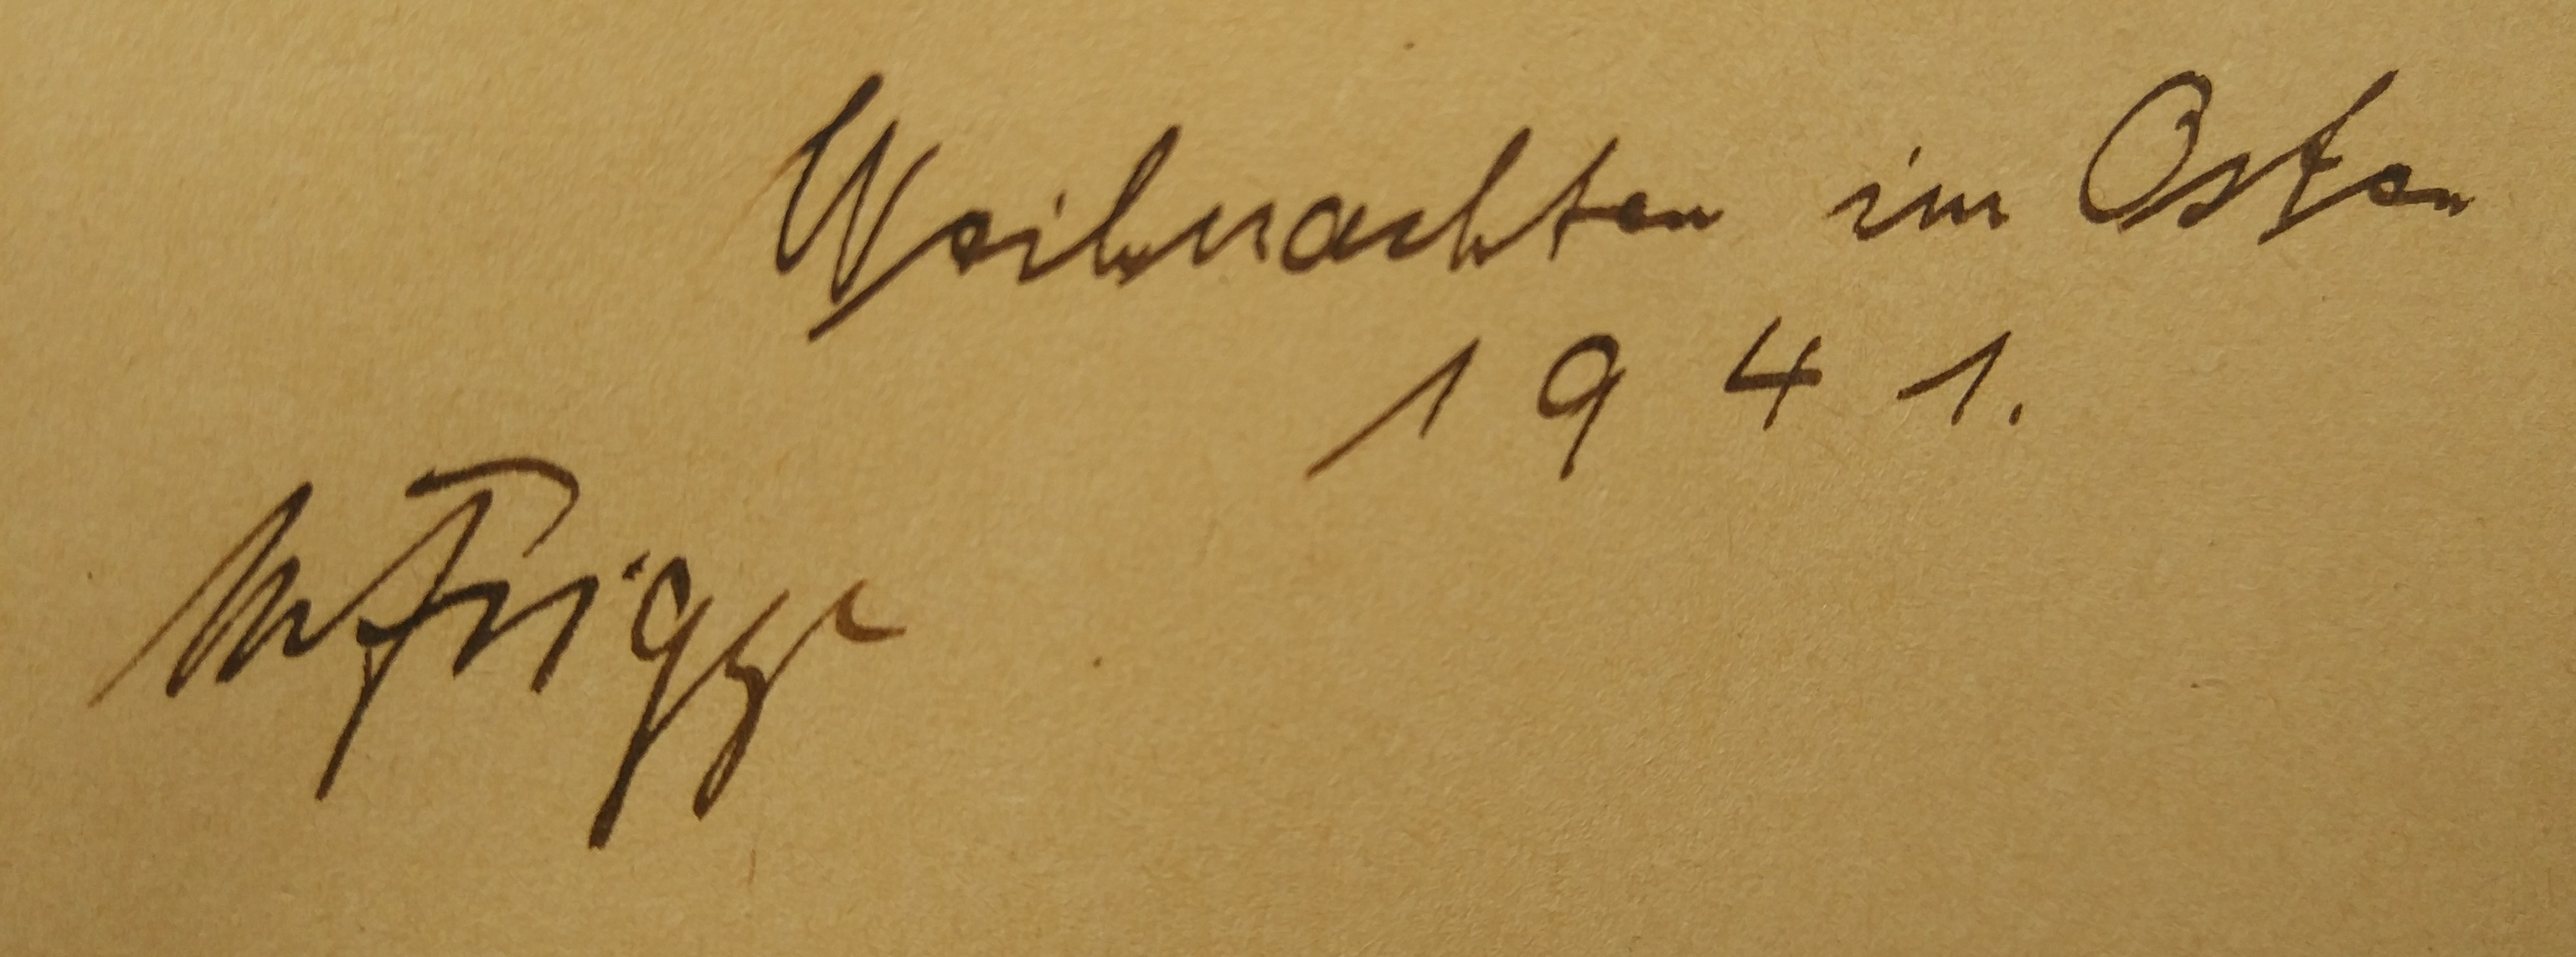 Weihnachten im Osten
1941.